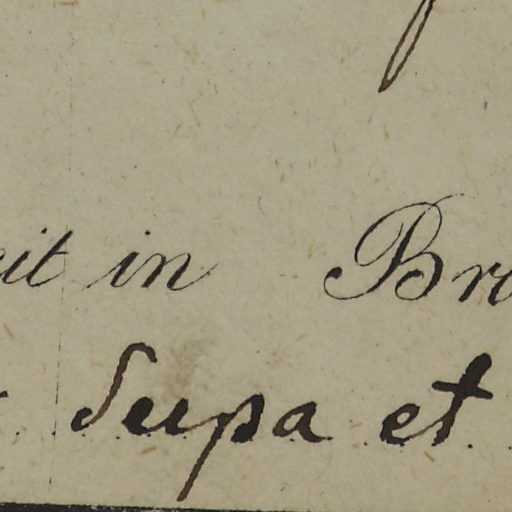 cit in Bro
Supa et